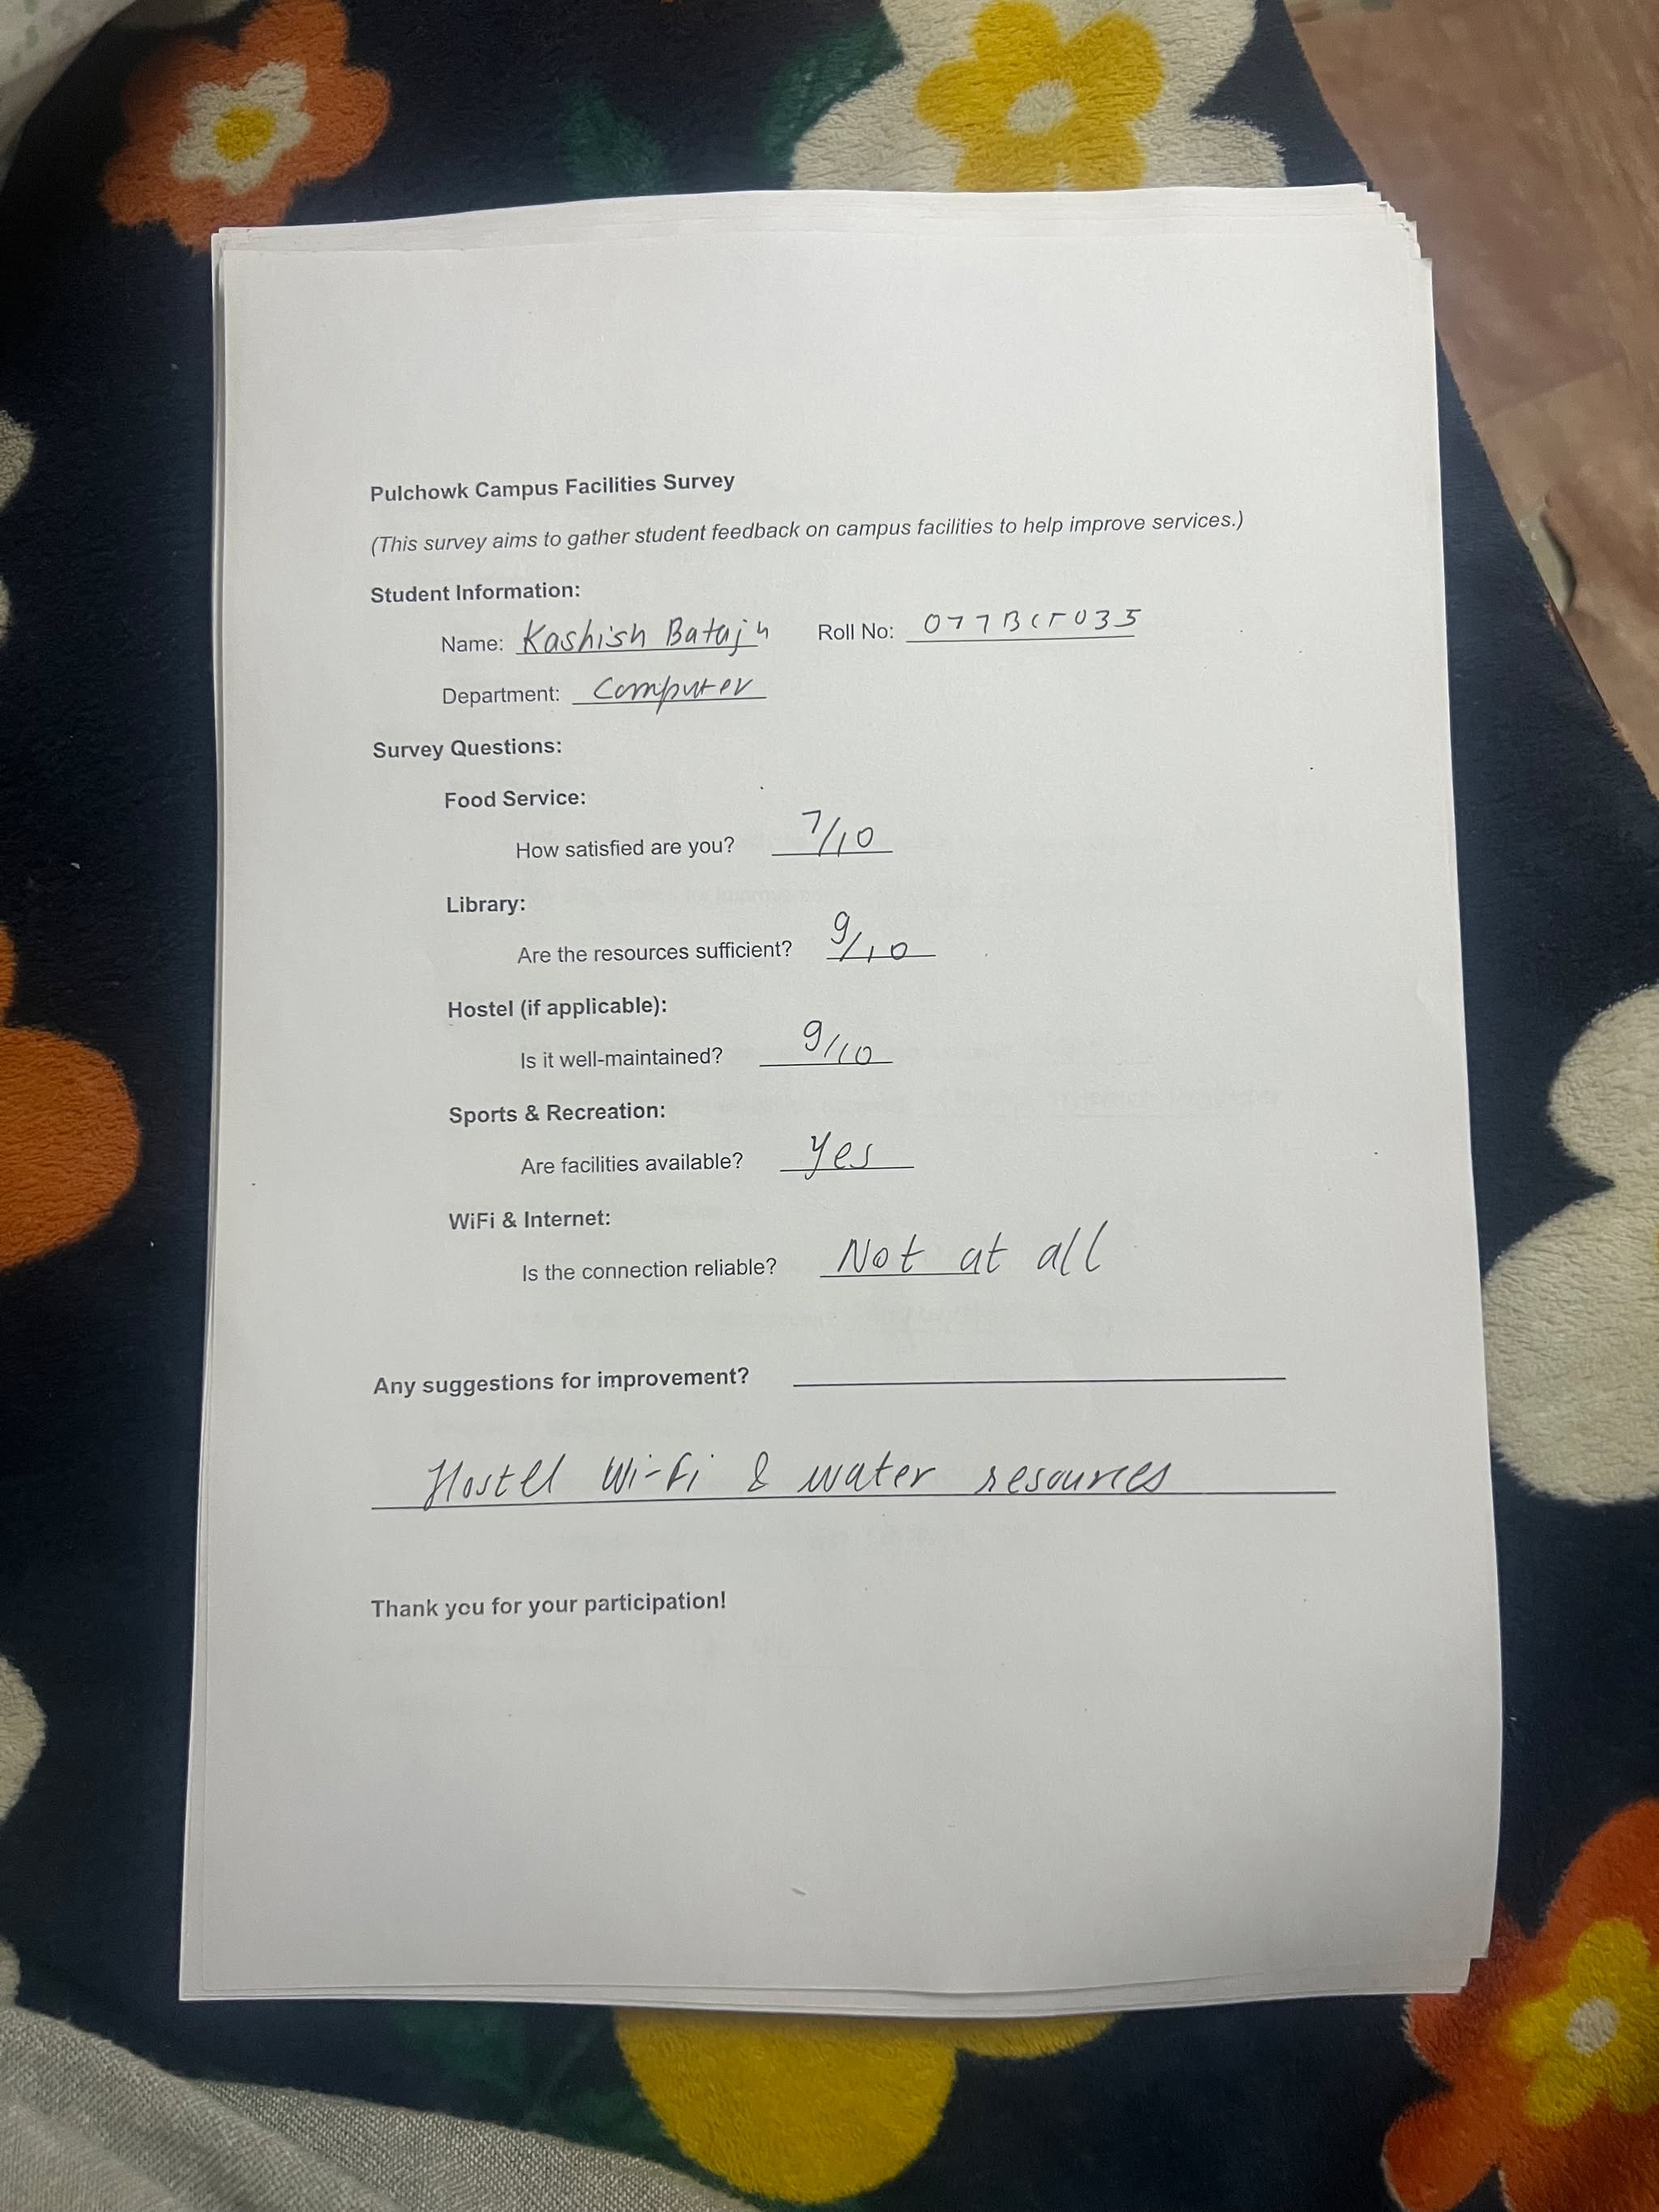 Pulchowk Campus Facilities Survey
(This survey aims to gather student feedback on campus facilities to help improve services.)
Student Information:
Name: Kashish Bataju Roll No: 077BCT035
Department: Computer
Survey Questions:
Food Service:
How satisfied are you? 7/10
Library:
Are the resources sufficient? 9/10
Hostel (if applicable):
Is it well-maintained? 9/10
Sports & Recreation:
Are facilities available? Yes
WiFi & Internet:
Is the connection reliable? Not at all
Any suggestions for improvement?
Hostel Wi-Fi & water resources
Thank you for your participation!